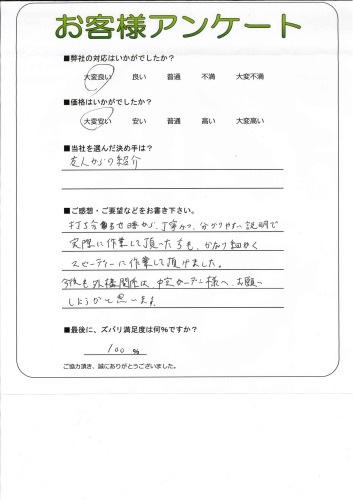 お客様アンケート
■弊社の対応はいかがでしたか?
大変良い 良い 普通 不満 大変不満
■価格はいかがでしたか?
大変安い 安い 普通 高い 大変高い
■当社を選んだ決め手は?
友人からの紹介
■ご感想・ご要望などをお書き下さい。
打ち合わせ時から、丁寧かつ、分かりやすい説明で
実際に作業して頂いた方も、かなり細かく
スピーディーに作業して頂けました。
今後も外構関係は、ガーデン様へ、お願い
しようかと思います。
■最後に、ズバリ満足度は何%ですか?
100 %
ご協力頂き、誠にありがとうございました。